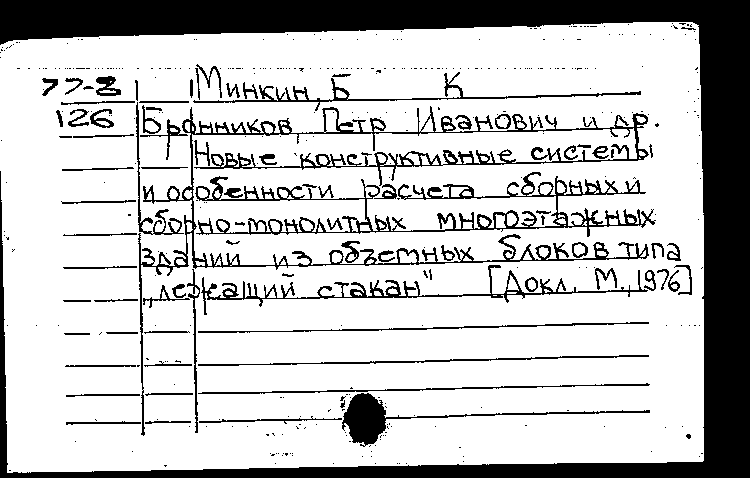 77-3 Минкин, Б К
126 Бронников, Петр Иванович и др.
Новые конструктивные системы
и особенности расчета сборных и
сборно-монолитных многоэтажных
зданий из объемных блоков типа
„лежащий стакан" [Докл. М., 1976]